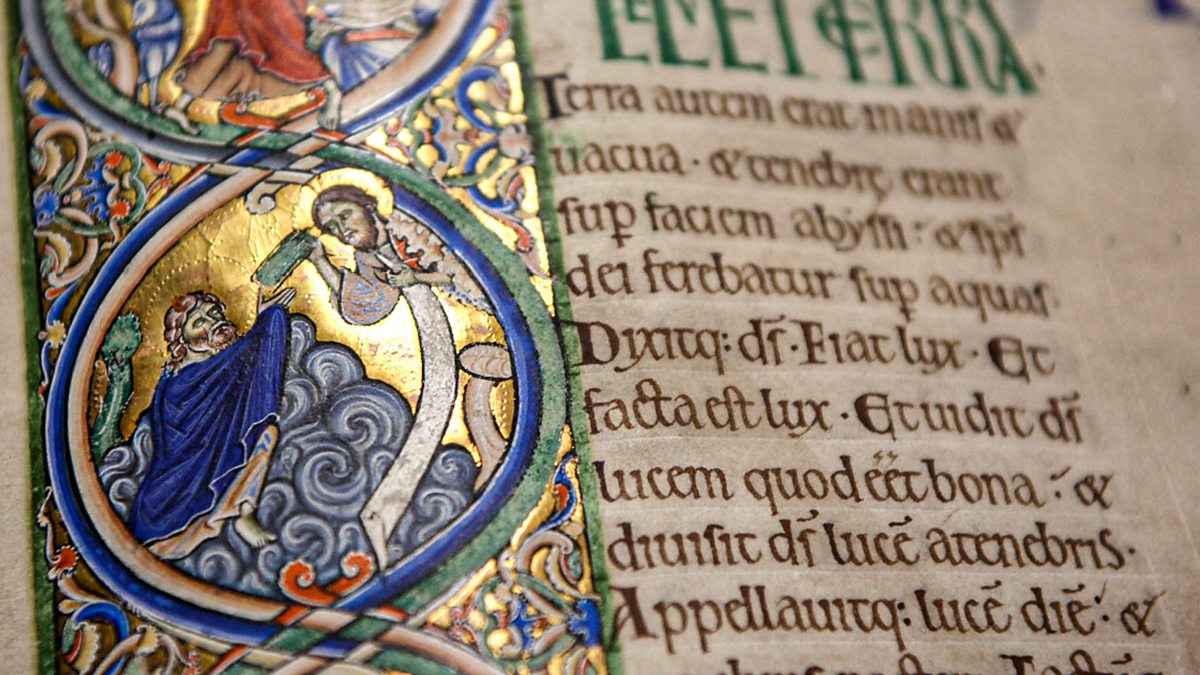 ET TERRA.
Terra autem erat inanis &
uacua · & tenebrę erant
sup̱ faciem abyssi : & sp̄s
dei ferebatur sup̱ aquas·
Dixitq: ds̄ · Fiat lux · Et
facta est lux · Et uidit ds̄
lucem quod eēt bona : &
diuisit ds̄ lucē a tenebris·
Appellauitq: lucē diē : &